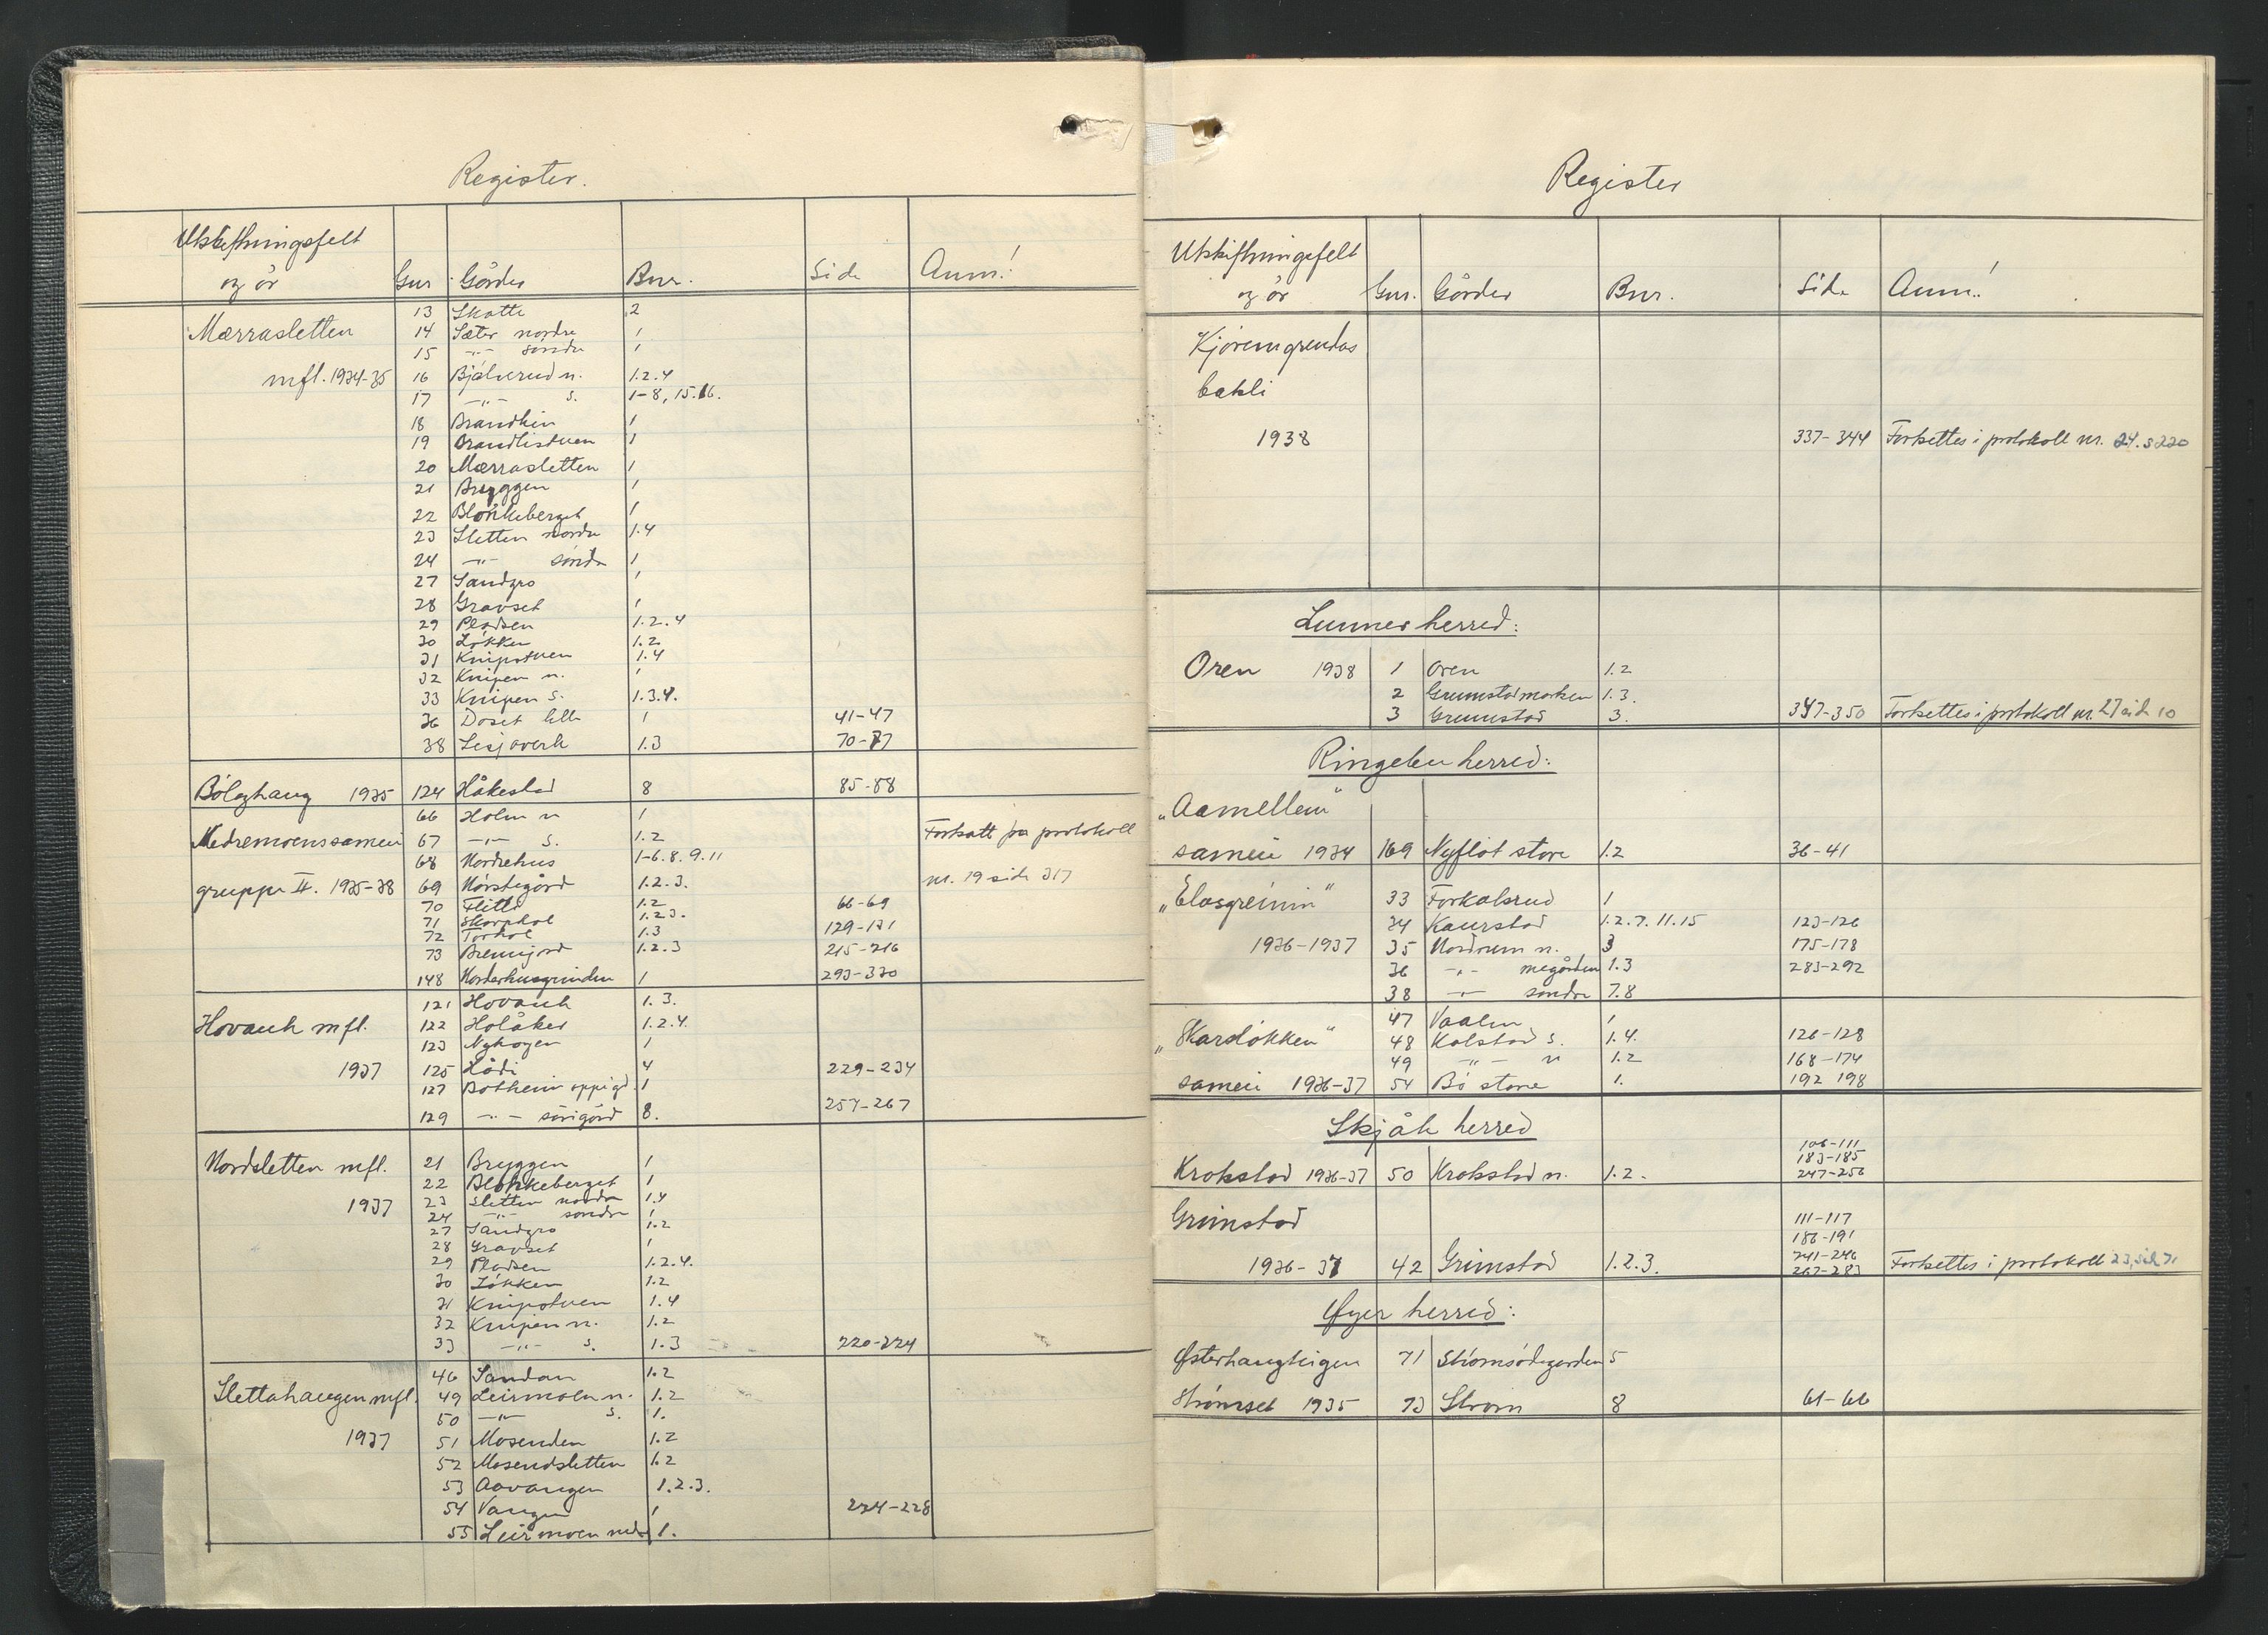 Register.
Utskiftningsfelt
og år Gnr Gårder Bnr. Side Anm!
13 Skotte 2
Mærrasletten 14 Sæter nordre 1
15 -"- søndre 1
mfl. 1934-35 16 Bjølverud n. 1.2.4
17 -"- s. 1-8, 15.16.
18 Brandlien 1
19 Brandlistuen 1
20 Mærrasletten 1
21 Bryggen 1
22 Blokkeberget 1
23 Sletten nordre 1.4
24 -"- søndre 1
27 Sandgro 1
28 Gravset 1
29 Pladsen 1.2.4
30 Løkken 1.2
31 Knipstuen 1.4
32 Knipen n. 1
33 Knipen s. 1.3.4.
36 Doset lille 1 41-47
38 Lesjaverk 1.3 70-77
Bølghaug 1935 124 Håkestad 8 85-88
66 Holm n 1
Nedremoenssameie 67 -"- s. 1.2 Forsatt på protokoll
68 Nordrehus 1-6.8.9.11
gruppe II. 1935-38 69 Nørstegård 1.2.3. nr. 19 side 317
70 Flittie 1.2 66-69
71 Skarphol 1.2.3.
72 Torhol 1.3 129-131
73 Brennjord 1.2.3 215-216
148 Nordrehusgrinden 1 293-330
121 Hovauk 1.3.
Hovauk mfl. 122 Holåker 1.2.4.
123 Nyhagen 1
1937 125 Lådi 4 229-234
127 Botheim oppigd. 1
129 -"- sørigård 8. 257-267
Nordsletten mfl. 21 Bryggen 1
22 Blokkeberget 1
1937 23 Sletten nordre 1.4
24 -"- søndre 1
27 Sandgro 1.2
28 Gravset 1
29 Pladsen 1.2.4.
30 Løkken 1.2
31 Knipstuen 1.4
32 Knipen n. 1.2
33 -"- s. 1.3 220-224
46 Sandan 1.2
Slettahaugen mfl. 49 Leirmoen n. 1.2
50 -"- s. 1.
1937 51 Mosenden 1.2
52 Mosendsletten 1.2
53 Aavangen 1.2.3.
54 Vangen 1 224-228
55 Leirmoen nedre 1.
Register
Utskiftningsfelt
og år Gnr. Gårder Bnr. Side Anm!
Kjøremgrendas
bakli
1938 337-344 Fortsettes i protokoll nr. 24. s 220
Lunner herred:
Oren 1938 1 Oren 1.2
2 Grumstadmarken 1.3.
3 Grumstad 3. 347-350 Fortsettes i protokoll nr. 27 side 10
Ringebu herred:
"Aamellem"
sameie 1934 169 Nyfløt store 1.2 36-41
"Elasgreinin" 33 Forkalsrud 1
34 Kaurstad 1.2.7.11.15 123-126
1936-1937 35 Nordrum n. 3 175-178
36 -"- megården 1.3 283-292
38 -"- søndre 7.8
47 Vaalen 1
"Skarsløkken" 48 Kolstad s. 1.4. 126-128
49 -"- n 1.2 168-174
sameie 1936-37 54 Bø store 1. 192 198
Skjåk herred
106-111
183-185
Krokstad 1936-37 50 Krokstad n. 1.2. 247-256
Grimstad 111-117
186-191
241-246
1936-37 42 Grimstad 1.2.3. 267-283 Fortsettes i protokoll 23, side 71
Øyer herred:
Østerhaugteigen 71 Strømsødegarden 5
Strømset 1935 73 Strøm 8 61-66